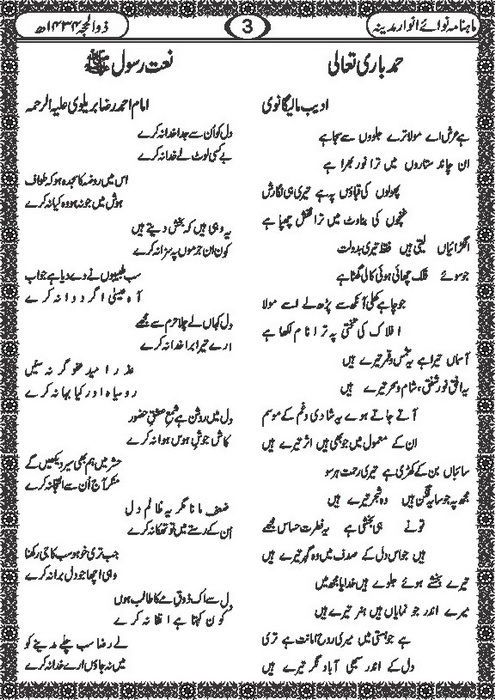 ماہنامہ نوائے انوار مدینہ
3
ذوالحجہ ۱۴۳۴ھ
حمد باری تعالیٰ
ادیب مالیگانوی
ہے عرش اے مولا ترے جلووں سے سجا ہے
ان چاند ستاروں میں ترا نور بھرا ہے
پھولوں کی قباؤں پہ ہے تیری ہی نگارش
غنچوں کی بناوٹ میں ترا نقش چھپا ہے
انگڑائیاں لیتی ہیں فقط تیری بدولت
جو سوئے فلک چھائی ہوئی کالی گھٹا ہے
جو چاہے کھلی آنکھ سے پڑھ لے اسے مولا
افلاک کی تختی پہ ترا نام لکھا ہے
آسماں تیرا ہے یہ شمس و قمر تیرے ہیں
یہ افق نور شفق، شام و سحر تیرے ہیں
آتے جاتے ہوئے یہ شادی و غم کے موسم
ان کے معمول میں جو بھی ہیں اثر تیرے ہیں
سائباں بن کے کھڑی ہے تیری رحمت ہر سو
مجھ پہ جو سایہ فگن ہیں وہ شجر تیرے ہیں
تو نے ہی بخشی ہے یہ فطرت حساس مجھے
ہیں جو اس دل کے صدف میں وہ گہر تیرے ہیں
تیرے بخشے ہوئے جلوے ہیں خدایا مجھ میں
میرے اندر جو نمایاں ہیں ہنر تیرے ہیں
ہے جو ہستی میں میری روح امانت ہے تری
دل کے اندر سبھی آباد نگر تیرے ہیں
نعت رسول ﷺ
امام احمد رضا بریلوی علیہ الرحمہ
دل کو اُن سے خدا جدا نہ کرے
بے کسی لوٹ لے خدا نہ کرے
اس میں روضہ کا سجدہ ہو کہ طواف
ہوش میں جو نہ ہو وہ کیا نہ کرے
یہ وہی ہیں کہ بخش دیتے ہیں
کون ان جرموں پہ سزا نہ کرے
سب طبیبوں نے دے دیا ہے جواب
آہ عیسیٰ اگر دوا نہ کرے
دل کہاں لے چلا حرم سے مجھے
ارے تیرا برا خدا نہ کرے
عذر امید عفو گر نہ سنیں
رو سیاہ اور کیا بہانہ کرے
دل میں روشن ہے شمع عشق حضور
کاش جوش ہوس ہوا نہ کرے
حشر میں ہم بھی سیر دیکھیں گے
منکر آج اُن سے التجا نہ کرے
ضعف مانا مگر یہ ظالم دل
اُن کے رستے میں تو تھکا نہ کرے
جب تری خو ہے سب کا جی رکھنا
وہی اچھا جو دل برا نہ کرے
دل سے اک ذوق مے کا طالب ہوں
کون کہتا ہے اتقا نہ کرے
لے رضا سب چلے مدینے کو
میں نہ جاؤں ارے خدا نہ کرے